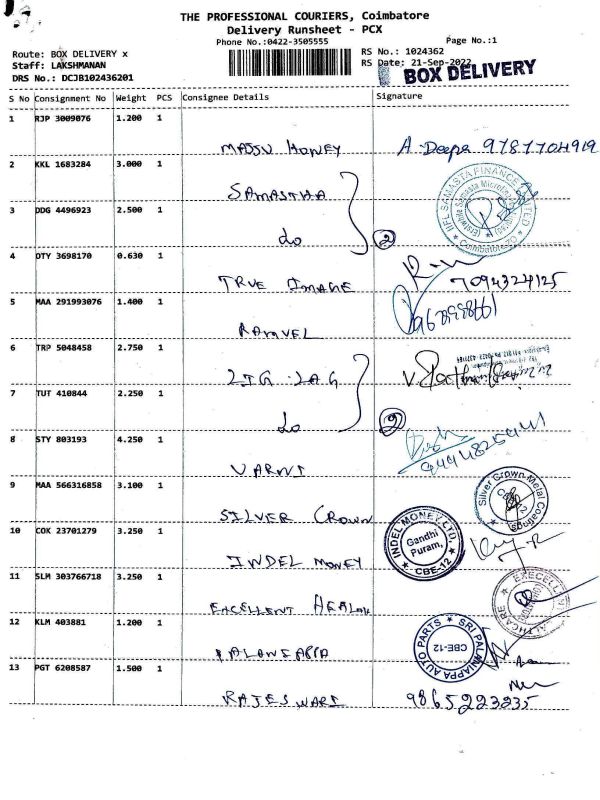 THE PROFESSIONAL COURIERS, Coimbatore
Delivery Runsheet - PCX
Phone No.:0422-3505555
Page No.:1
Route: BOX DELIVERY x
RS No.: 1024362
Staff: LAKSHMANAN
RS Date: 21-Sep-2022
DRS No.: DCJB102436201
BOX DELIVERY
S No Consignment No Weight PCS Consignee Details Signature
1 RJP 3009076 1.200 1
A Deepa 9787704919
2 KKL 1683284 3.000 1
SAMASTHA
3 DDG 4496923 2.500 1
do 2
IIFL SAMASTA FINANCE LIMITED
Coimbatore-ZO
4 OTY 3698170 0.630 1
TRUE IMAGE 7094324125
5 MAA 291993076 1.400 1
RAMVEL
6 TRP 5048458 2.750 1
ZIG ZAG
7 TUT 410844 2.250 1
do 2
8 STY 803193 4.250 1
VARNI
9 MAA 566316858 3.100 1
SILVER CROWN
Silver Crown Metal Coatings
10 COK 23701279 3.250 1
INDEL MONEY
INDEL MONEY LTD.
Gandhi
Puram,
CBE-12
11 SLM 303766718 3.250 1
EXCELLENT
12 KLM 403881 1.200 1
PALANIAPPA
SRI PALANIAPPA AUTO PARTS
CBE-12
13 PGT 6208587 1.500 1
RAJESWARI 9865223235